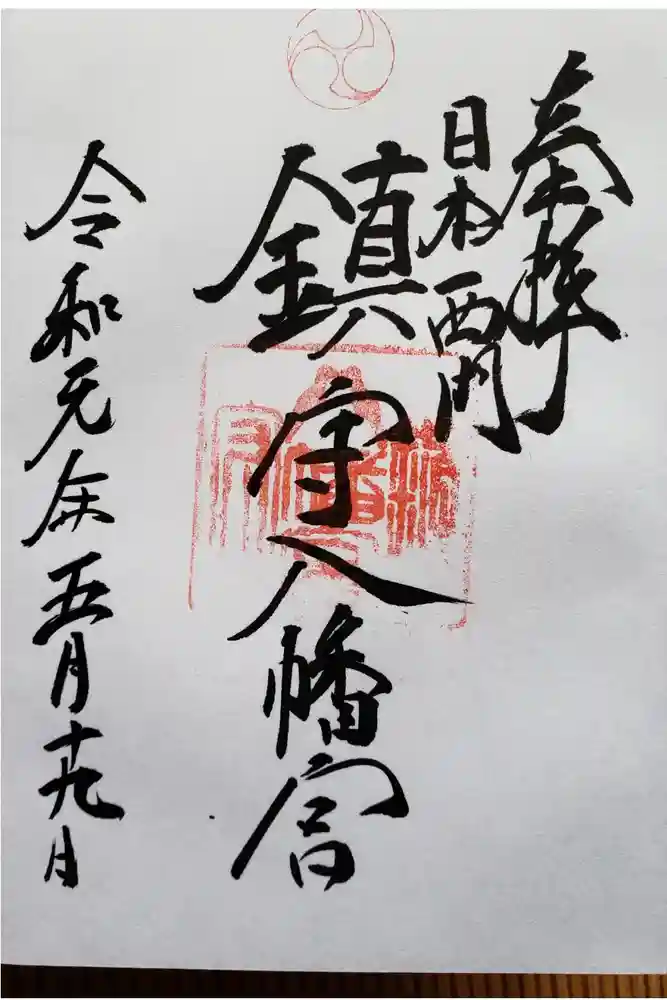 奉拝
日本西門
鎮守八幡宮
令和元年五月十九日